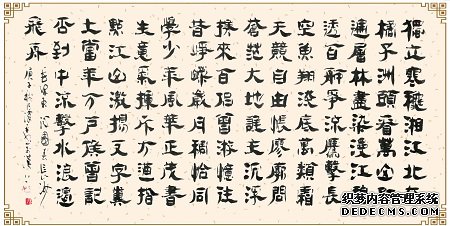 獨立寒穐湘江北去
橘子洲頭看萬山紅
遍層林盡染漫江碧
透百舸爭流鷹擊長
空魚翔淺底萬類霜
天競自由悵廖廓問
蒼茫大地誰主沉浮
攜來百侶曾游憶往
昔崢嶸歲月稠恰同
學少年風華正茂書
生意氣揮斥方遒指
點江山激揚文字糞
土當年万戶侯曾記
否到中流擊水浪遏
飛舟
毛澤東沁園春長沙
织梦内容管理系统
DEDECMS.COM